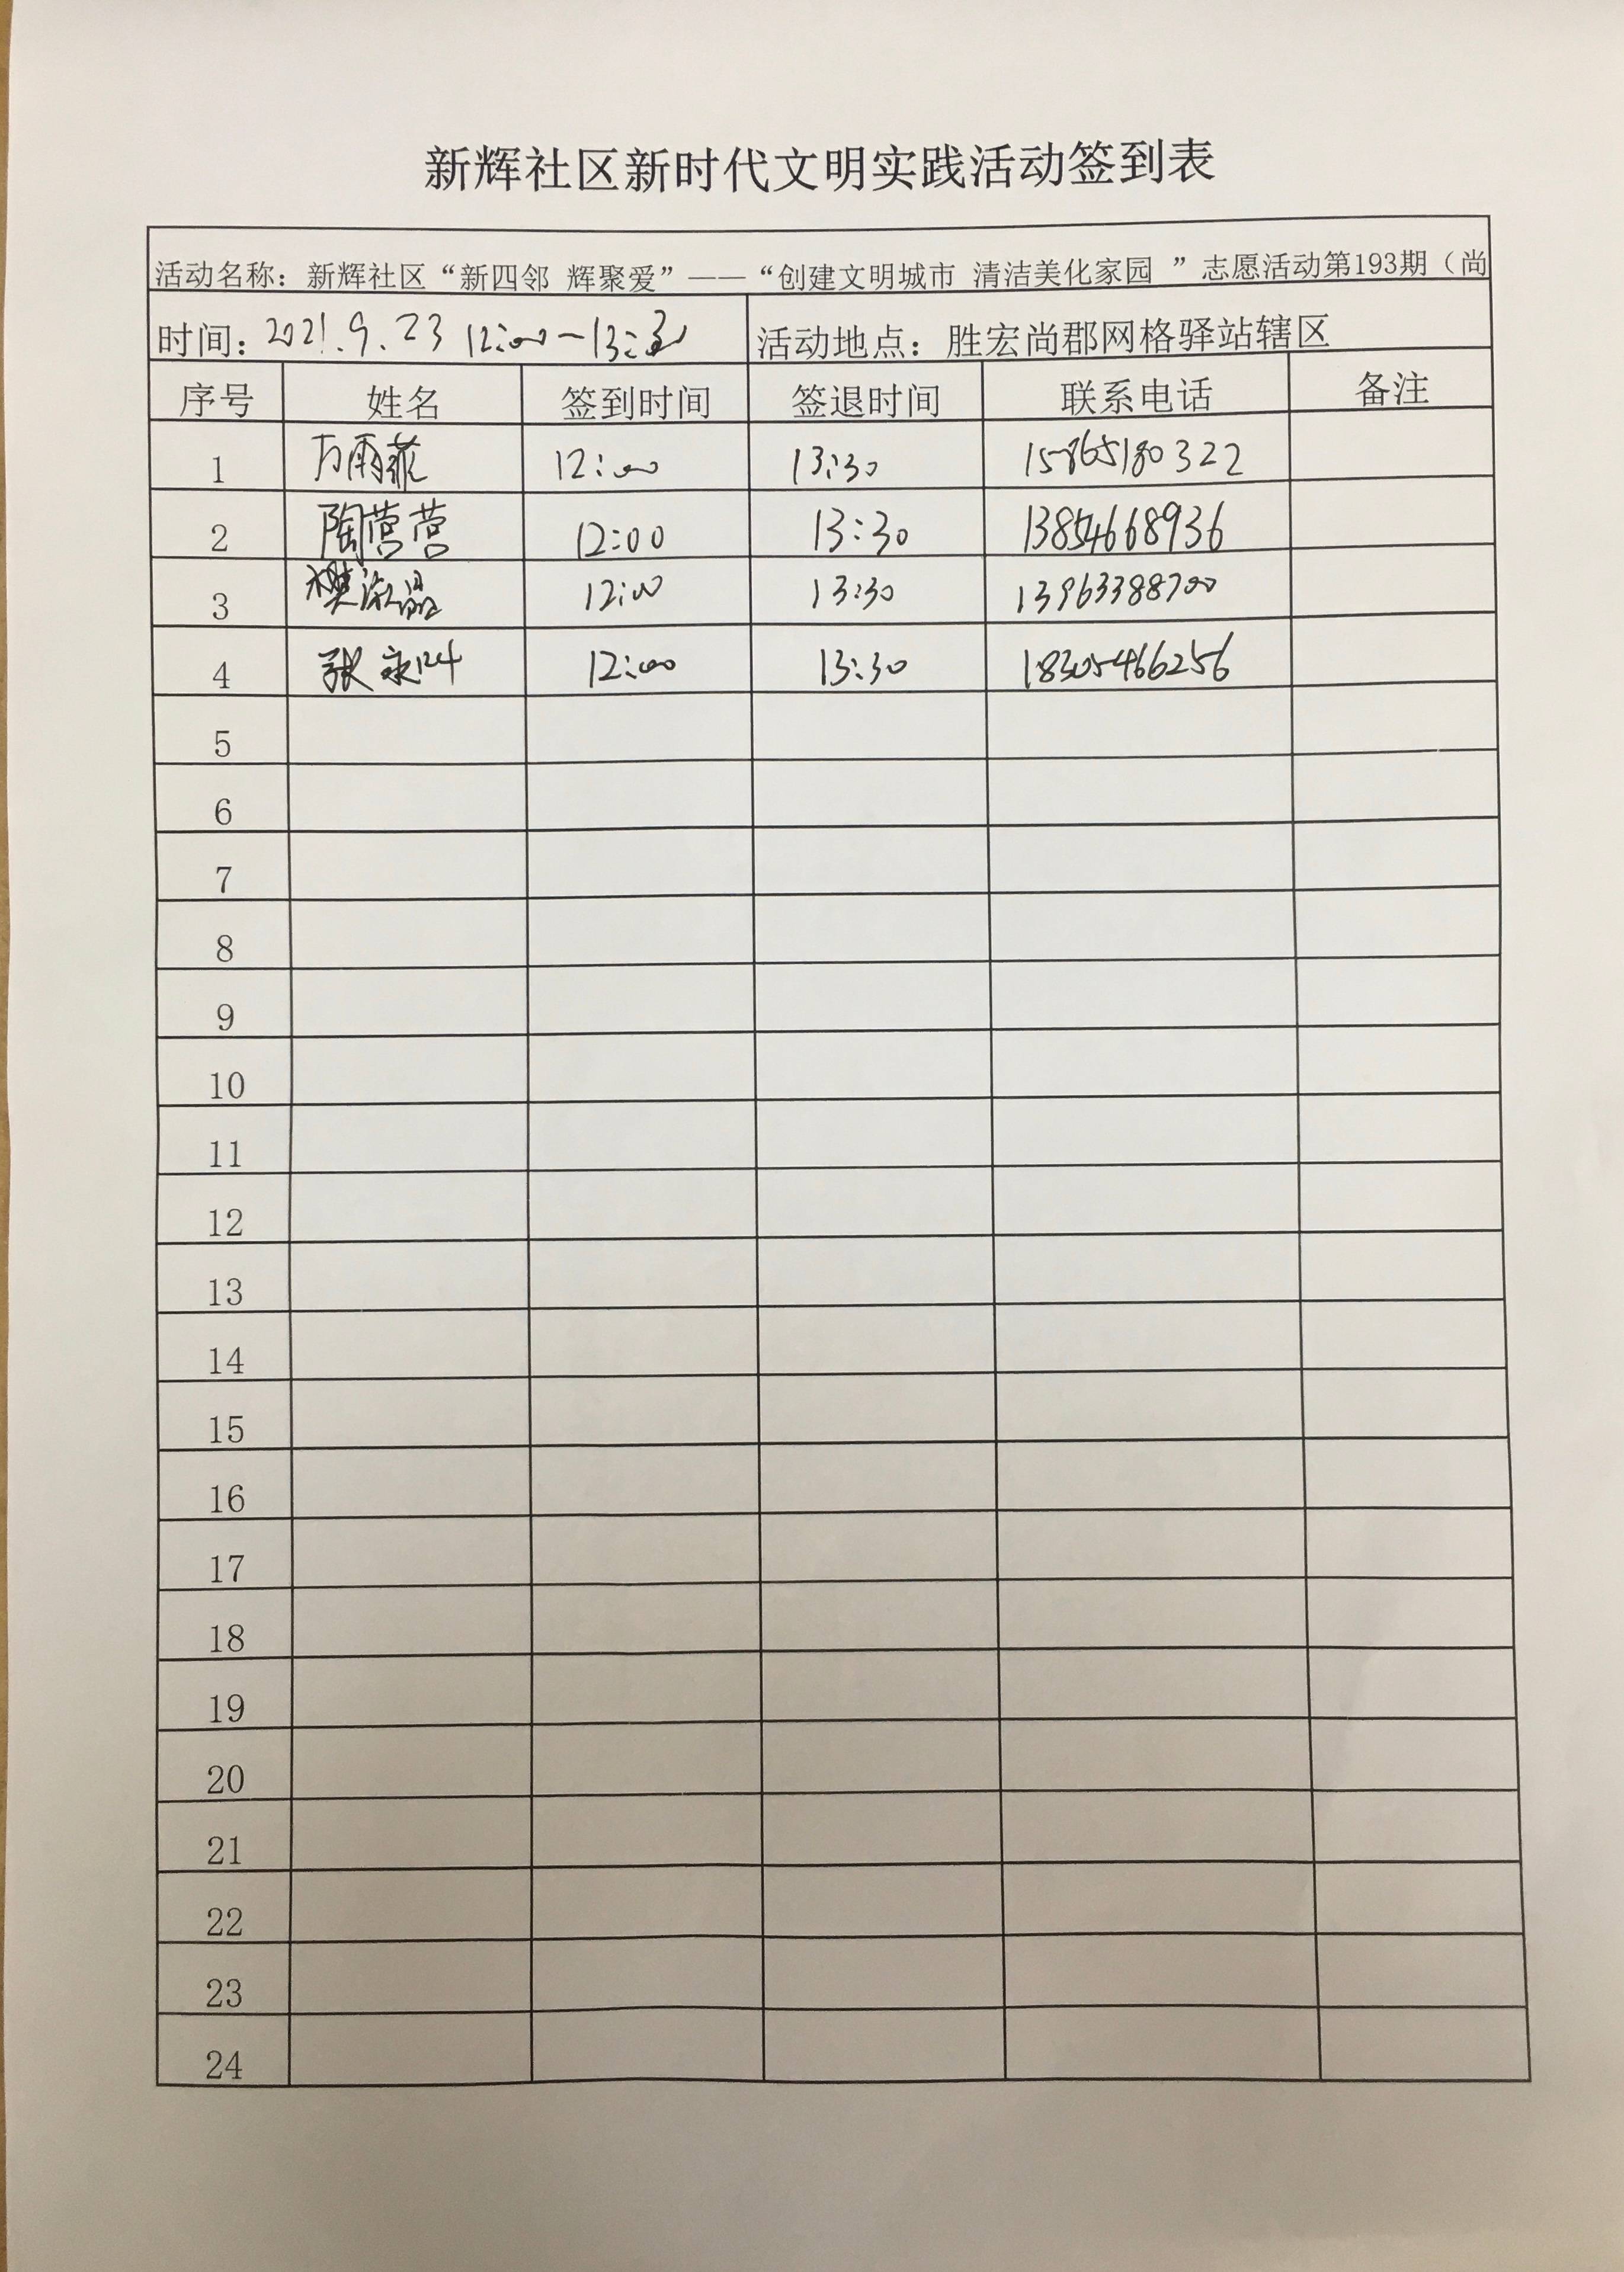 新辉社区新时代文明实践活动签到表
活动名称：新辉社区“新四邻 辉聚爱”——“创建文明城市 清洁美化家园 ”志愿活动第193期（尚
时间：2021.9.23 12:00-13:30 活动地点：胜宏尚郡网格驿站辖区
序号 姓名 签到时间 签退时间 联系电话 备注
1 万雨菲 12:00 13:30 15865180322
2 陶营营 12:00 13:30 13854668936
3 12:00 13:30 13963388700
4 张 12:00 13:30 18305466256
5
6
7
8
9
10
11
12
13
14
15
16
17
18
19
20
21
22
23
24